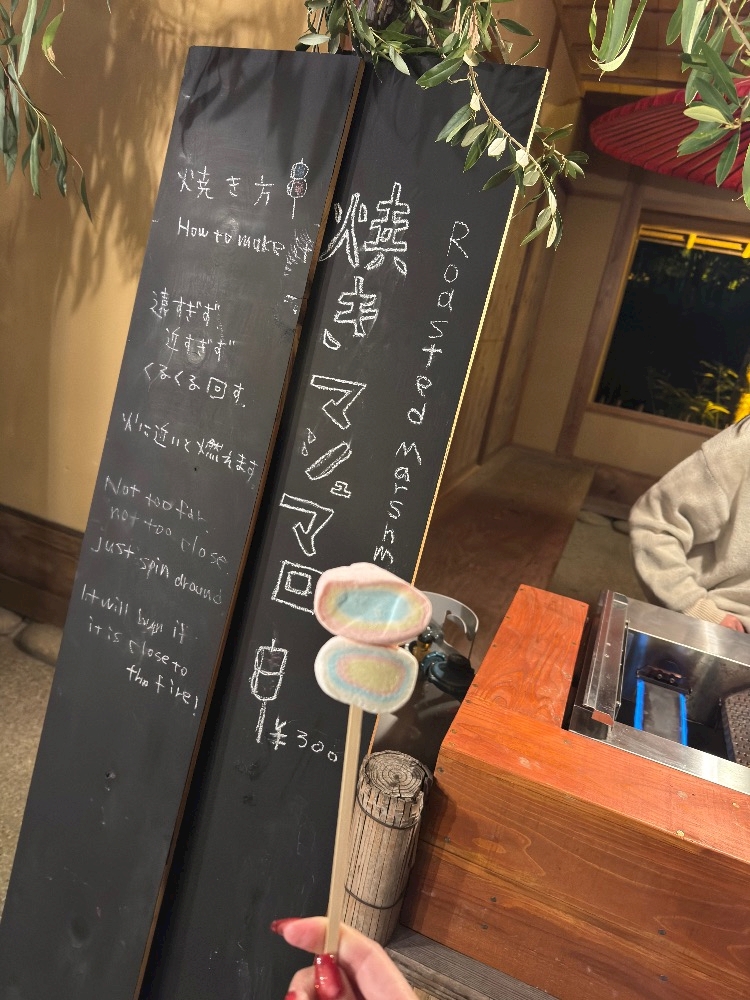 焼き方
How to make
遠すぎず
近すぎず
くるくる回す。
火に近いと燃えます
Not too far
not too close
just spin around
It will burn if
it is close to
the fire!
焼きマシュマロ
¥300
Roasted marshm